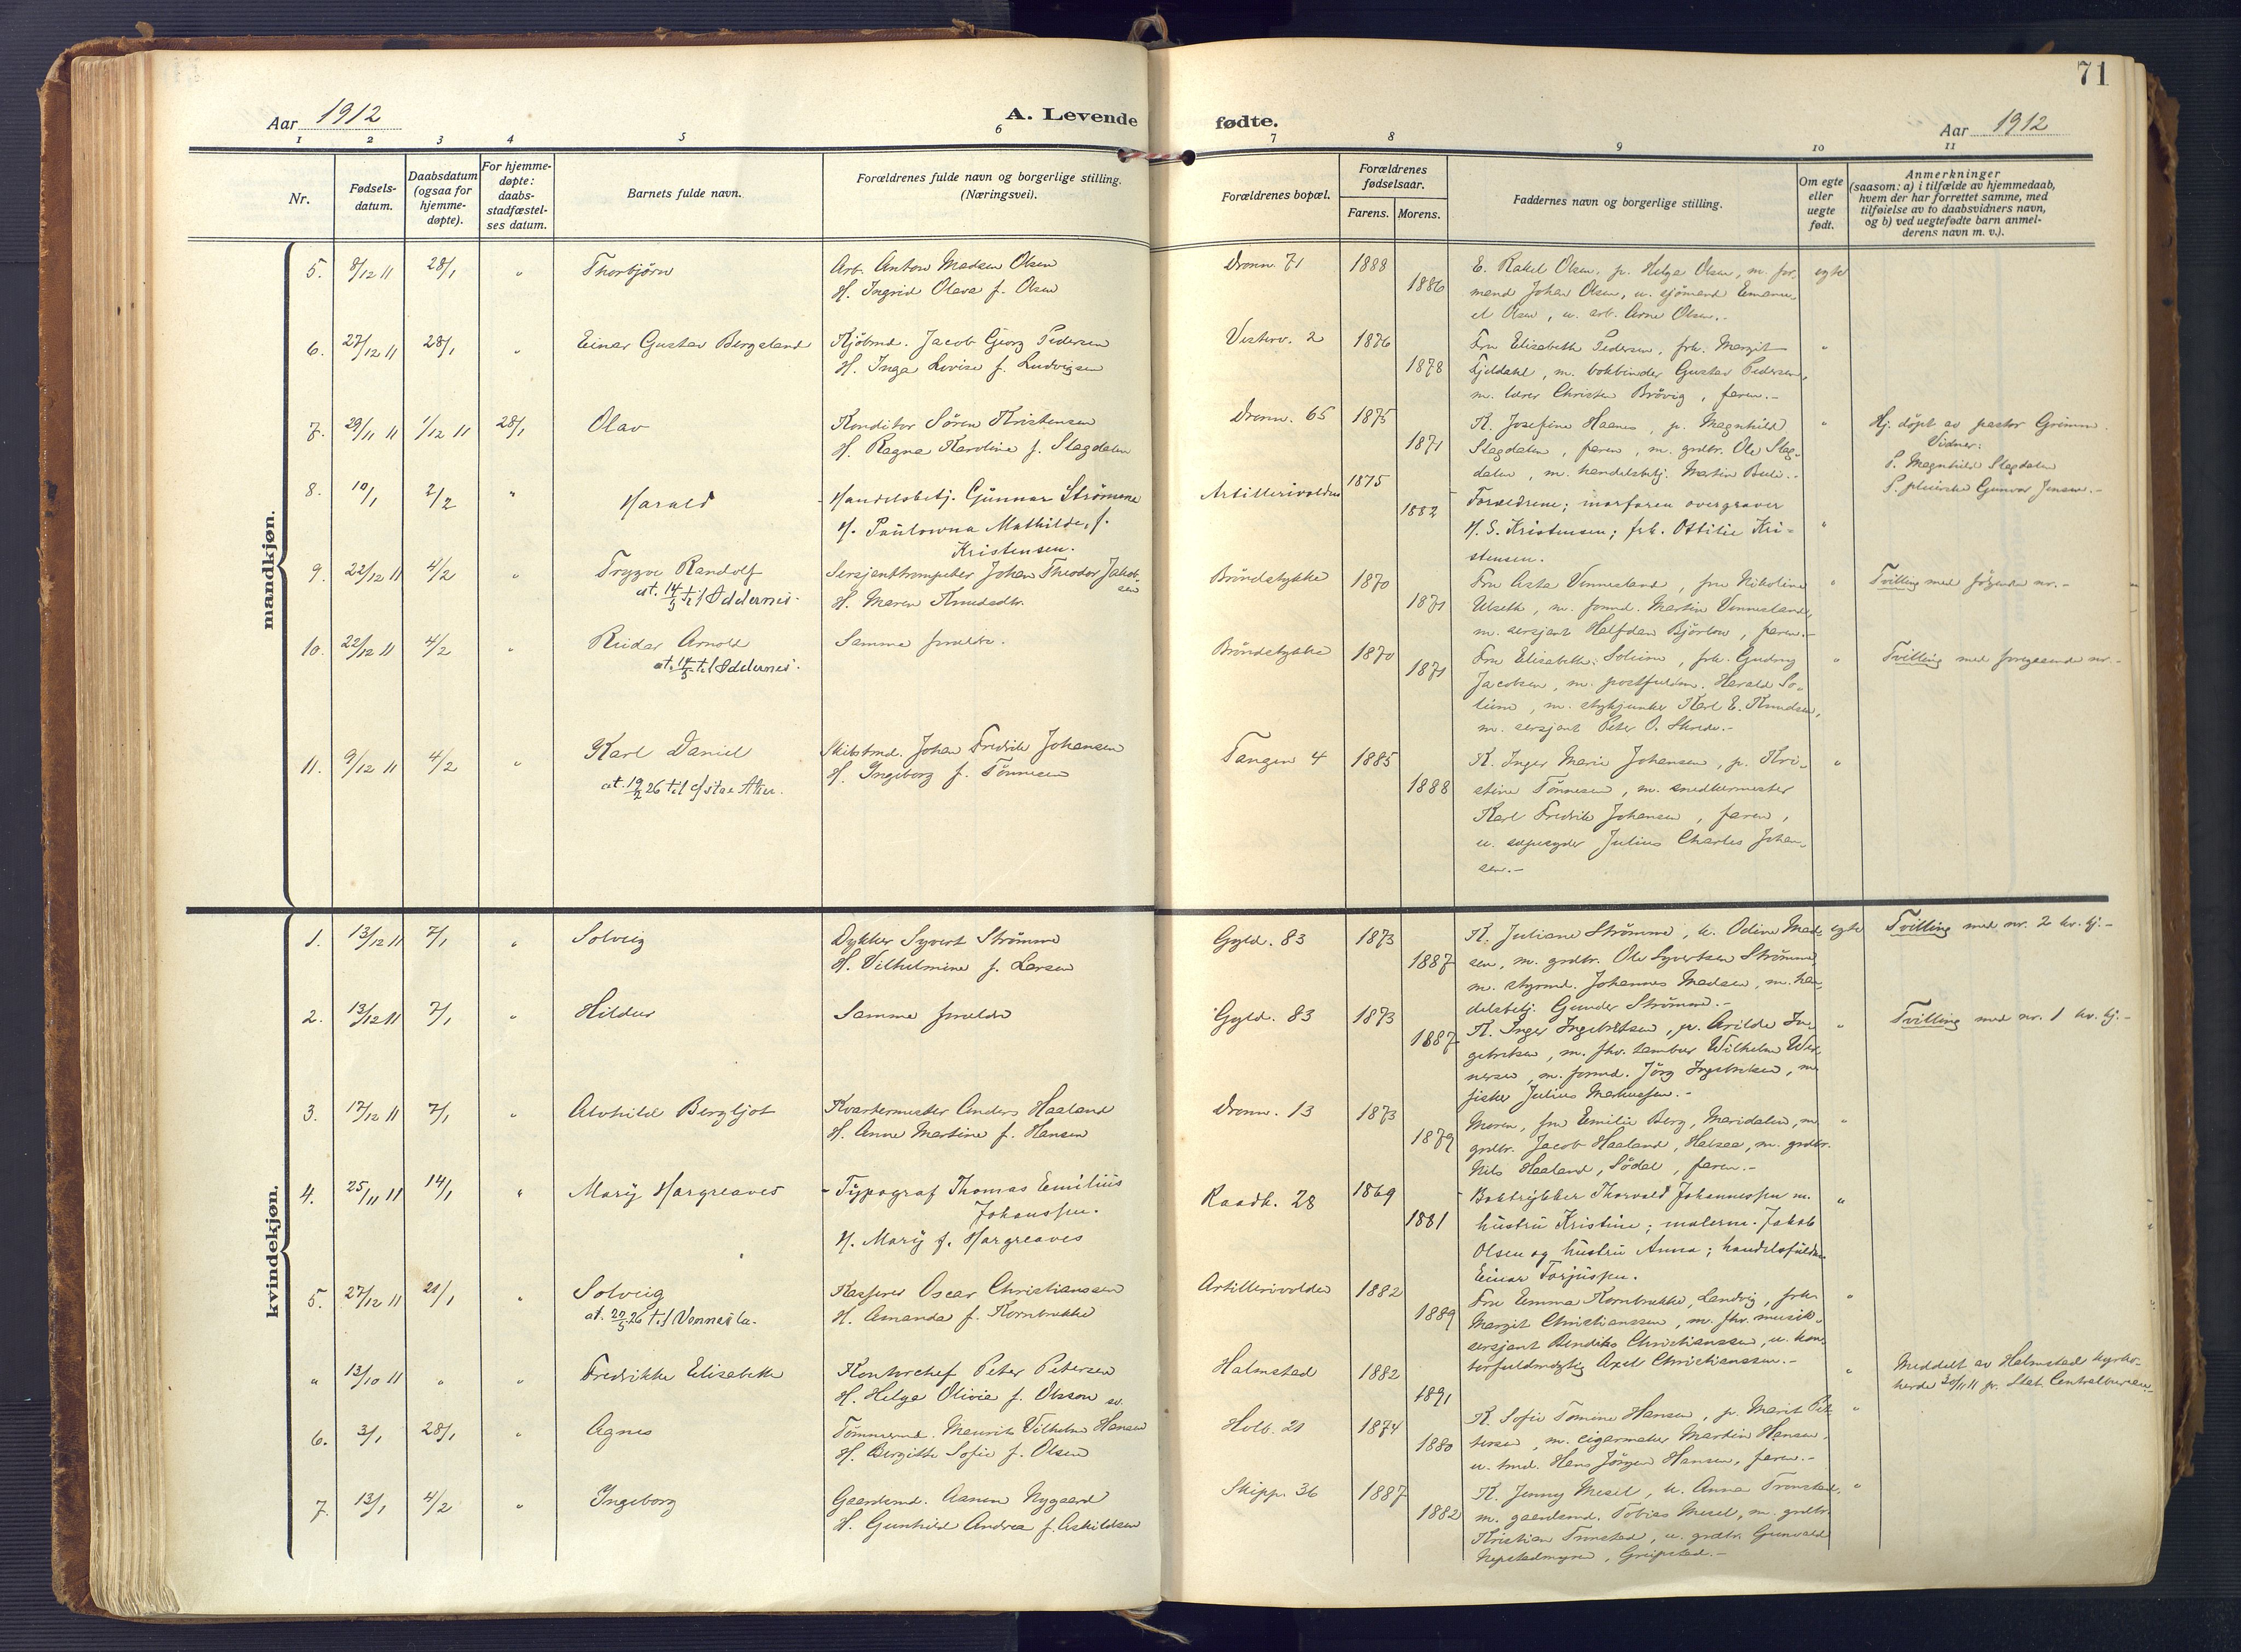 71
Aar 1912
A. Levende
fødte.
Aar 1912
1 2 3 4 5 6 7 8 9 10 11
Nr.
Fødsels-
datum.
Daabsdatum
(ogsaa for
hjemme-
døpte).
For hjemme-
døpte:
daabs-
stadfæstel-
ses datum.
Barnets fulde navn.
Forældrenes fulde navn og borgerlige stilling.
(Næringsvei).
Forældrenes bopæl.
Forældrenes
fødselsaar.
Farens. Morens.
Faddernes navn og borgerlige stilling.
Om egte
eller
uegte
født.
Anmerkninger
(saasom: a) i tilfælde av hjemmedaab,
hvem der har forrettet samme, med
tilføielse av to daabsvidners navn,
og b) ved uegtefødte barn anmel-
derens navn m. v.).
mandkjøn.
5. 8/12 11 28/1 " Thorbjörn
Arb. Anton Madsen Olsen
H. Ingrid Olava f. Olsen
Dronn. 71 1888 1886
E. Rakel Olsen, p. Helga Olsen, m. for-
mand Johan Olsen, u. sjömand Emanu-
el Olsen, u. arb. Arne Olsen.-
egte
6. 27/12 11 28/1 " Einar Gustav Bergsland
Kjöbmd. Jacob Georg Pedersen
H. Inga Lovise f. Ludvigsen
Vesterv. 2 1876 1878
Fru Elisabeth Pedersen, frk. Margit
Fjeldahl, m. bokbinder Gustav Pedersen,
m. lærer Christen Brövig, faren.-
"
7. 29/11 11 1/12 11 28/1 Olav
Konditor Sören Kristensen
H. Ragna Karoline f. Slagdalen
Dronn. 65 1875 1871
K. Josefine Haanes, p. Magnhild
Slagdalen, faren, m. grdbr. Ole Slag-
dalen, m. handelsbetj. Martin Bue.-
"
Hj. döpt av pastor Grimm.
Vidner:
P. Magnhild Slagdalen
S. pleierske Gunvor Jensen.-
8. 10/1 2/2 " Harald
Handelsbetj. Gunnar Strömme
H. Paulowna Mathilde, f.
Kristensen.
Artillerivolden 1875 1882
Forældrene; morfaren overgraver
H. S. Kristensen; frk. Ottilie Kri-
stensen.
"
9. 22/12 11 4/2 " Trygve Randolf
at. 14/5 til Oddernes.
Sersjanttrompeter Johan Theodor Jakob-
sen
H. Maren Knudsdtr.
Bröndstykke 1870 1871
Fru Asta Vennesland, fru Nikoline
Ulseth, m. formd. Martin Vennesland,
m. sersjant Halfdan Björlow, faren.-
"
Tvilling med fölgende nr.-
10. 22/12 11 4/2 " Reidar Arnold
at. 14/5 til Oddernes.
Samme forældre.
Bröndstykke 1870 1871
Fru Elisabeth Soleim, frk. Gudny
Jacobsen, m. postfuldm. Harald So-
leim, m. stykjunker Karl E. Knudsen,
m. sersjant Peter O.
"
Tvilling med foregaaende nr.-
11. 9/12 11 4/2 " Karl Daniel
at. 19/2 26 til
Skibstmd. Johan Fredrik Johansen
H. Ingeborg f. Tönnesen
Tangen 4 1885 1888
K. Inger Marie Johansen, p. Kri-
stine Tönnesen, m. snedkermester
Karl Fredrik Johansen, faren,
u. sæpesyder Julius Charles Johan-
sen.-
"
kvindekjøn.
1. 13/12 11 7/1 " Solveig
Dykker Syvert Strömme
H. Vilhelmine f. Larsen
Gyld. 83 1873 1887
K. Juliane Strömme, k. Odine Mad-
sen, m. grdbr. Ole Syvertsen Strömme,
m. styrmd. Johannes Madsen, m. han-
delsbetj. Gunder Strömme.-
egte
Tvilling med nr. 2 kv. kj.-
2. 13/12 11 7/1 " Hildur
Samme forældre
Gyld. 83 1873 1887
K. Inger Ingebretsen, p. Arilda In-
gebretsen, m. fhv. tambur Wilhelm Wer-
nersen, m. formd. Jörg Ingebretsen, m.
fisker Julius Markussen.-
"
Tvilling med nr. 1 kv. kj.-
3. 17/12 11 7/1 " Alvhild Bergljot
Kvartermester Anders Haaland
H. Anne Martine f. Hansen
Dronn. 13 1873 1879
Moren, fru Emilie Berg, Mandalen, m.
grdbr. Jacob Haaland, Halsaa, m. grdbr.
Nils Haaland, Södal, faren.-
"
4. 25/11 11 14/1 " Mary Hargreaves
Typograf Thomas Emilius
Johanssen.
H. Mary f. Hargreaves
Raadh. 28 1869 1881
Boktrykker Thorvald Johannessen m.
hustru Kristine; malerm. Jakob
Olsen og hustru Anna; handelsfuldm.
Einar Torjussen.
"
5. 27/12 11 21/1 " Solveig
at. 20/5 26 til Vennesla.
Kasserer Oscar Christianssen
H. Amanda f. Kornbrekke
Artillerivolden 1882 1889
Fru Emma Kornbrekke, Landvig, frk.
Margit Christianssen, m. fhv. musik-
sersjant Bendiks Christianssen, u. kon-
torfuldmægtig Axel Christianssen.-
"
" 13/10 11 " " Fredrikke Elisabeth
Kontorchef Peter Petersen
H. Helga Olivia f. Olsson
Halmstad 1882 1891
"
Meddelt av Halmstads kyrko-
herde 30/11 11 pr. Stat. Centralbureau.-
6. 3/1 28/1 " Agnes
Tömmermd. Maurits Vilhelm Hansen
H. Bergitte Sofie f. Olsen
Holb. 21 1874 1880
K. Sofie Tomine Hansen, p. Marit Pet-
tersen, m. cigarmaker Martin Hansen,
u. tmd. Hans Jörgen Hansen, faren.-
"
7. 13/1 4/2 " Ingeborg
Gaardsmd. Aanen Nygaard
H. Gunhild Andrea f. Askildsen
Skipp. 36 1887 1882
K. Jenny Mesel, u. Anna Tronstad,
m. gaardsmd. Tobias Mesel, m. grdbr.
Kristian Tronstad, u. grdbr. Gunvald
Nepstadmyren, Greipstad.-
"